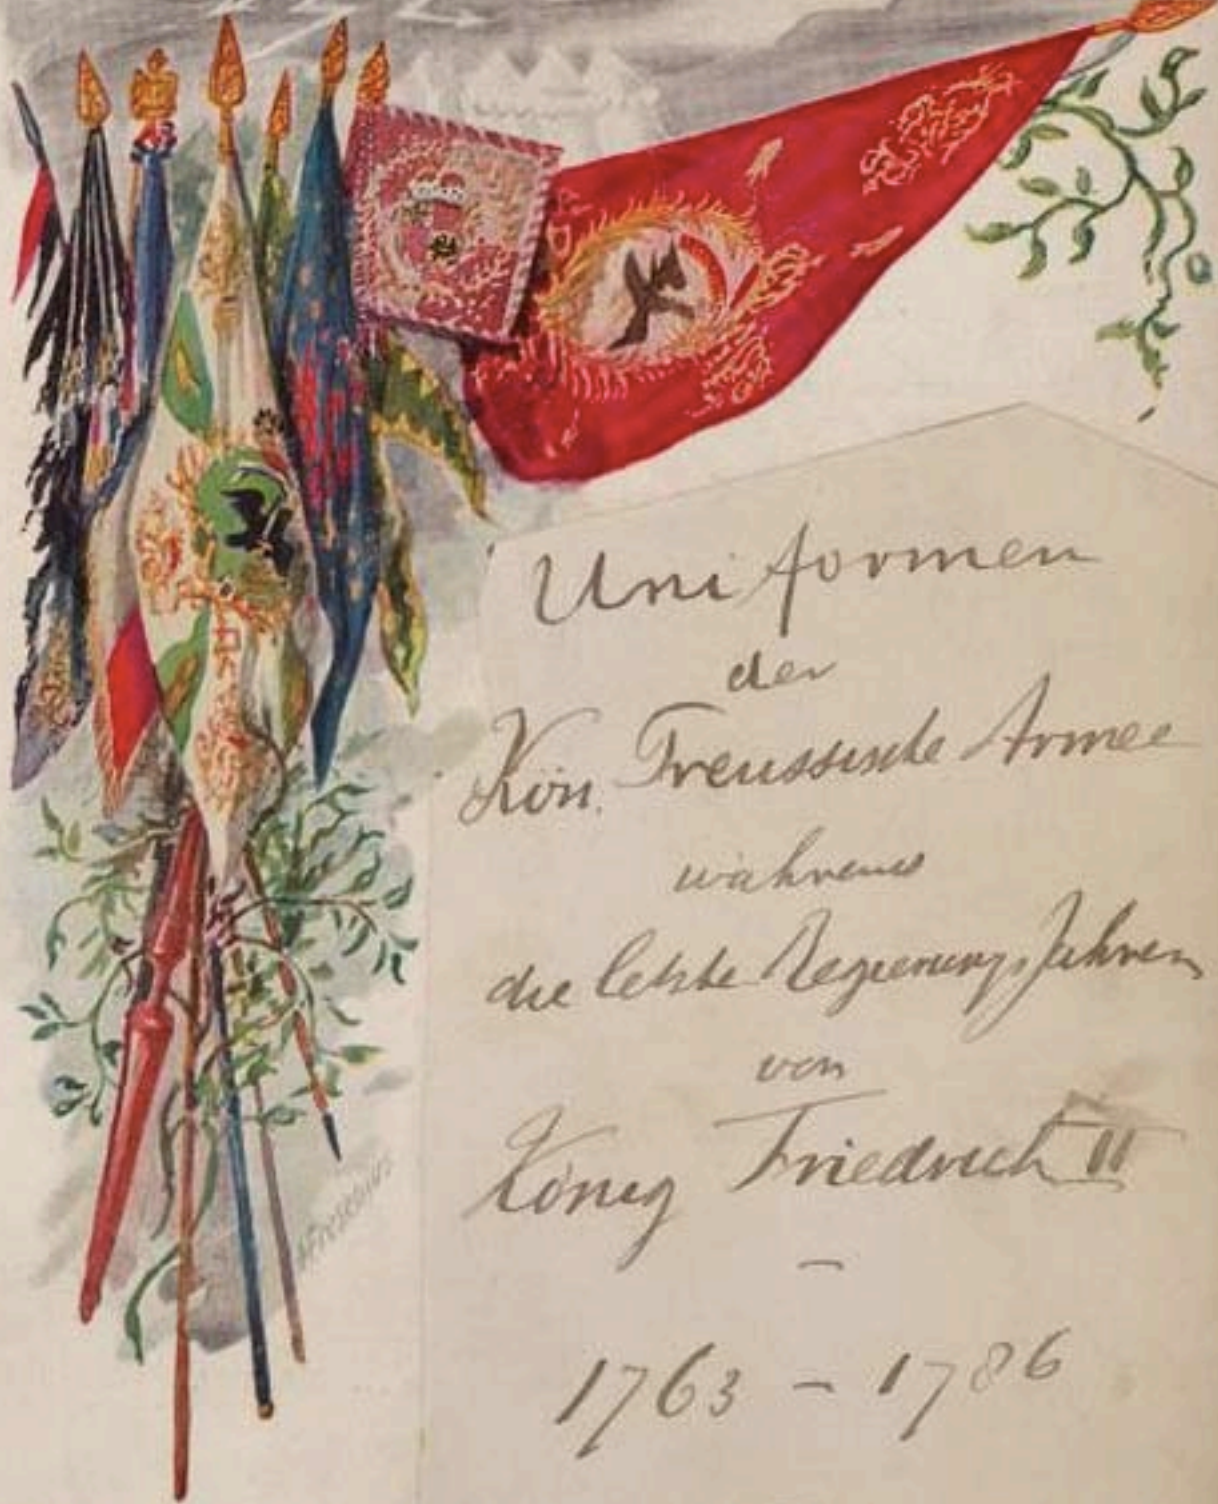 Uniformen
der
Kön. Preussische Armee
während
die letzte Regierungs Jahren
von
König Friedrich II
—
1763 – 1786